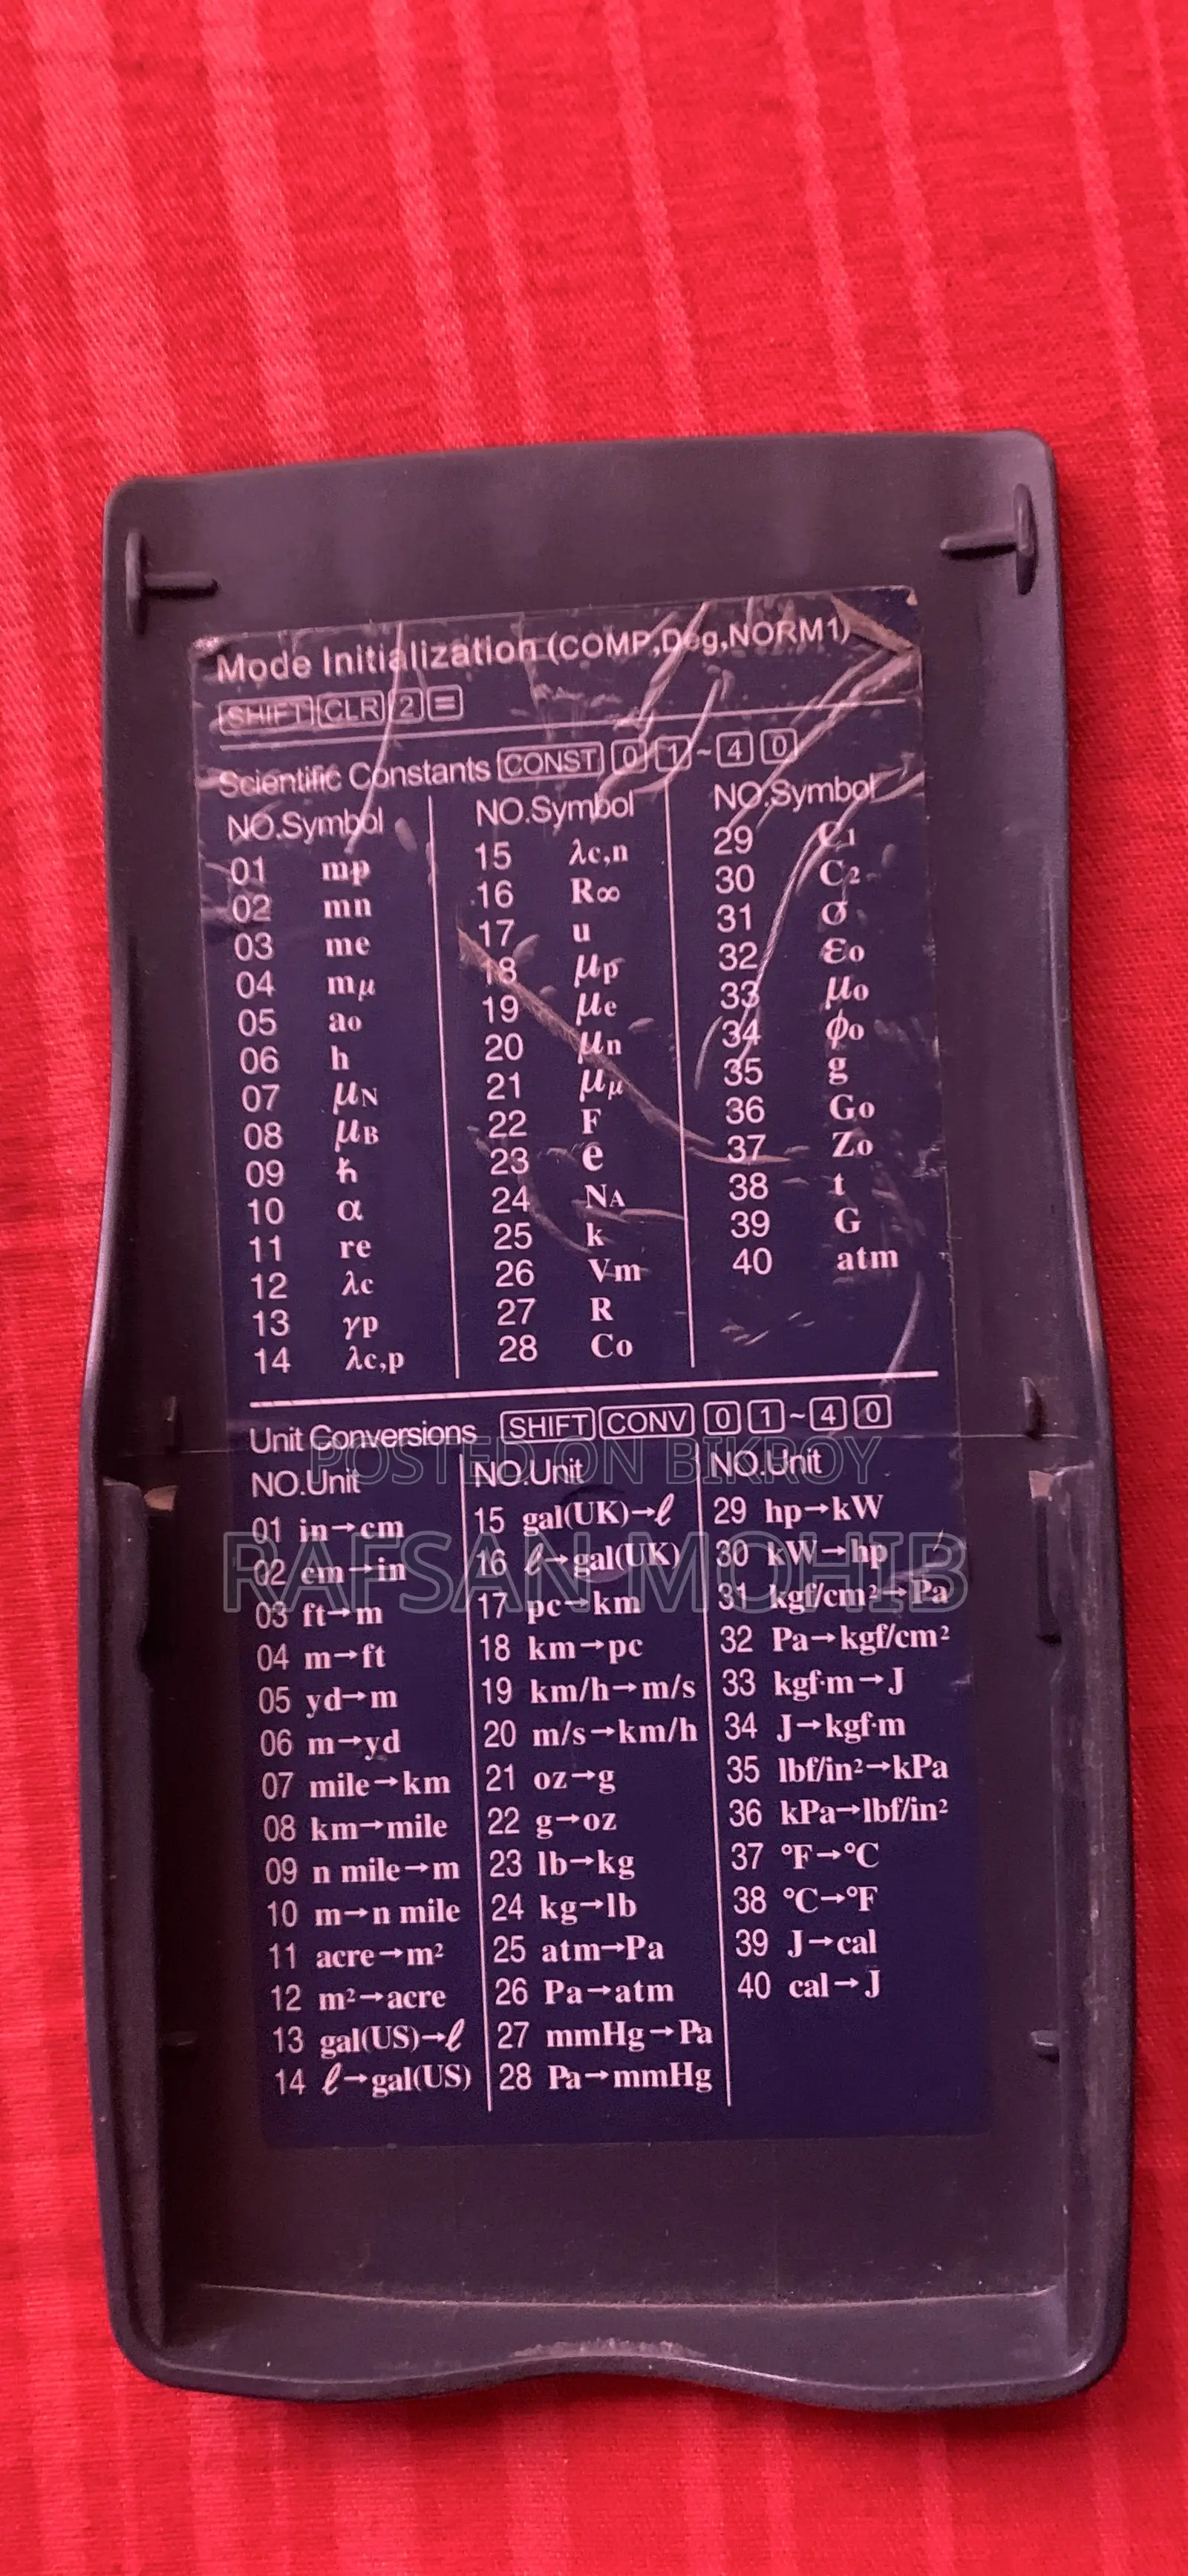 Mode Initialization (COMP,Deg,NORM1)
SHIFT CLR 2 =
Scientific Constants CONST 0 1 ~ 4 0
NO.Symbol
01 mp
02 mn
03 me
04 mμ
05 ao
06 h
07 μN
08 μB
09 ℏ
10 α
11 re
12 λc
13 γp
14 λc,p
NO.Symbol
15 λc,n
16 R∞
17 u
18 μp
19 μe
20 μn
21 μμ
22 F
23 e
24 NA
25 k
26 Vm
27 R
28 Co
NO.Symbol
29 C1
30 C2
31 σ
32 εo
33 μo
34 ϕo
35 g
36 Go
37 Zo
38 t
39 G
40 atm
Unit Conversions SHIFT CONV 0 1 ~ 4 0
NO.Unit
01 in→cm
02 cm→in
03 ft→m
04 m→ft
05 yd→m
06 m→yd
07 mile→km
08 km→mile
09 n mile→m
10 m→n mile
11 acre→m²
12 m²→acre
13 gal(US)→ℓ
14 ℓ→gal(US)
NO.Unit
15 gal(UK)→ℓ
16 ℓ→gal(UK)
17 pc→km
18 km→pc
19 km/h→m/s
20 m/s→km/h
21 oz→g
22 g→oz
23 lb→kg
24 kg→lb
25 atm→Pa
26 Pa→atm
27 mmHg→Pa
28 Pa→mmHg
NO.Unit
29 hp→kW
30 kW→hp
31 kgf/cm²→Pa
32 Pa→kgf/cm²
33 kgf·m→J
34 J→kgf·m
35 lbf/in²→kPa
36 kPa→lbf/in²
37 °F→°C
38 °C→°F
39 J→cal
40 cal→J
POSTED ON BIKROY
RAFSAN MOHIB